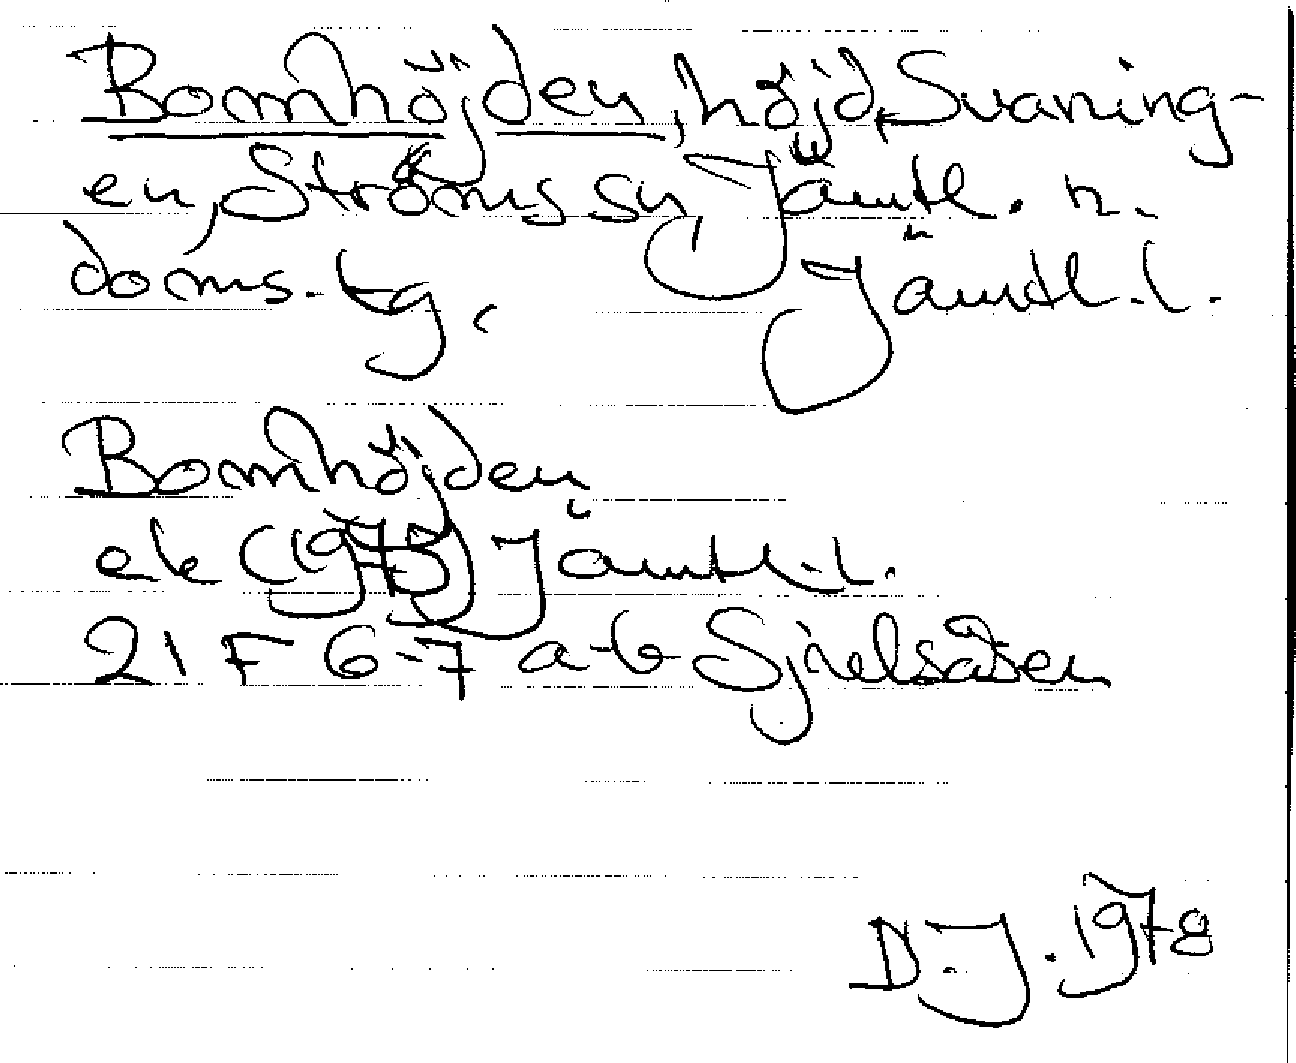 Bomhöjden, höjd, Svaning-
en, Ströms sn, Jämtl. n.
doms. tg, Jämtl. l.
Bomhöjden
ek (1975) Jämtl. l.
21 F 6-7 a-b Sjulsåsen
D.J. 1978